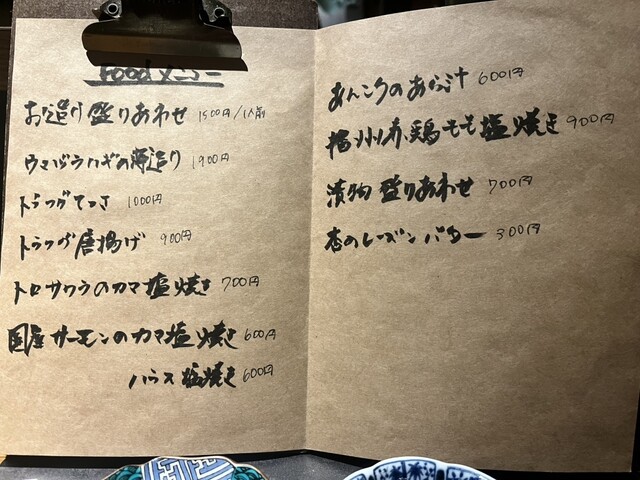 Foodメニュー
お造り盛りあわせ 1500円/1人前
ウマヅラハギの薄造り 1900円
トラフグてっさ 1000円
トラフグ唐揚げ 900円
トロサワラのカマ塩焼き 700円
国産サーモンのカマ塩焼き 600円
ハラス塩焼き 600円
あんこうのあら汁 600円
播州赤鶏もも塩焼き 900円
漬物盛りあわせ 700円
杏のレーズンバター 300円